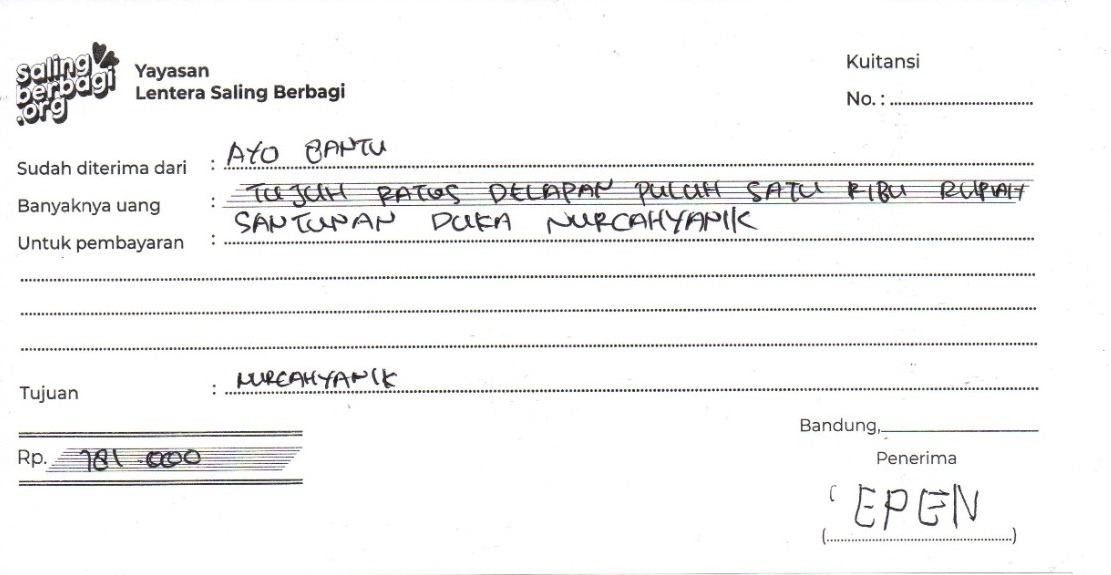 saling
berbagi
.org
Yayasan
Lentera Saling Berbagi
Kuitansi
No. :
Sudah diterima dari : AYO BANTU
Banyaknya uang : TUJUH RATUS DELAPAN PULUH SATU RIBU RUPIAH
Untuk pembayaran : SANTUNAN DUKA NURCAHYANIK
Tujuan : NURCAHYANIK
Rp. 781.000
Bandung,
Penerima
EPEN
(....................)